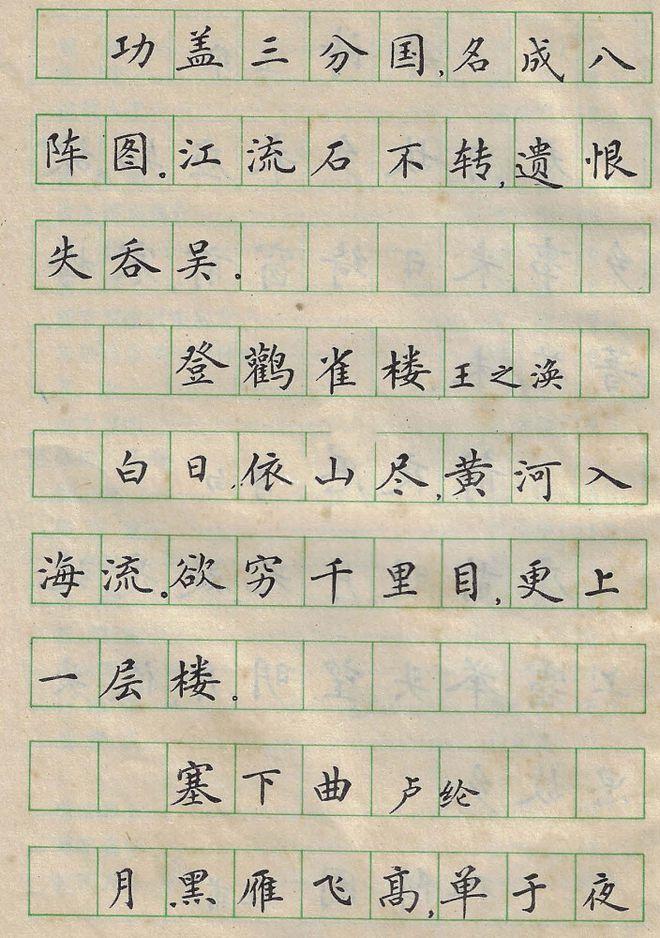 功盖三分国,名成八
阵图.江流石不转,遗恨
失吞吴.
登鹳雀楼 王之涣
白日.依山尽,黄河入
海流.欲穷千里目,更上
一层楼.
塞下曲 卢纶
月黑雁飞高,单于夜